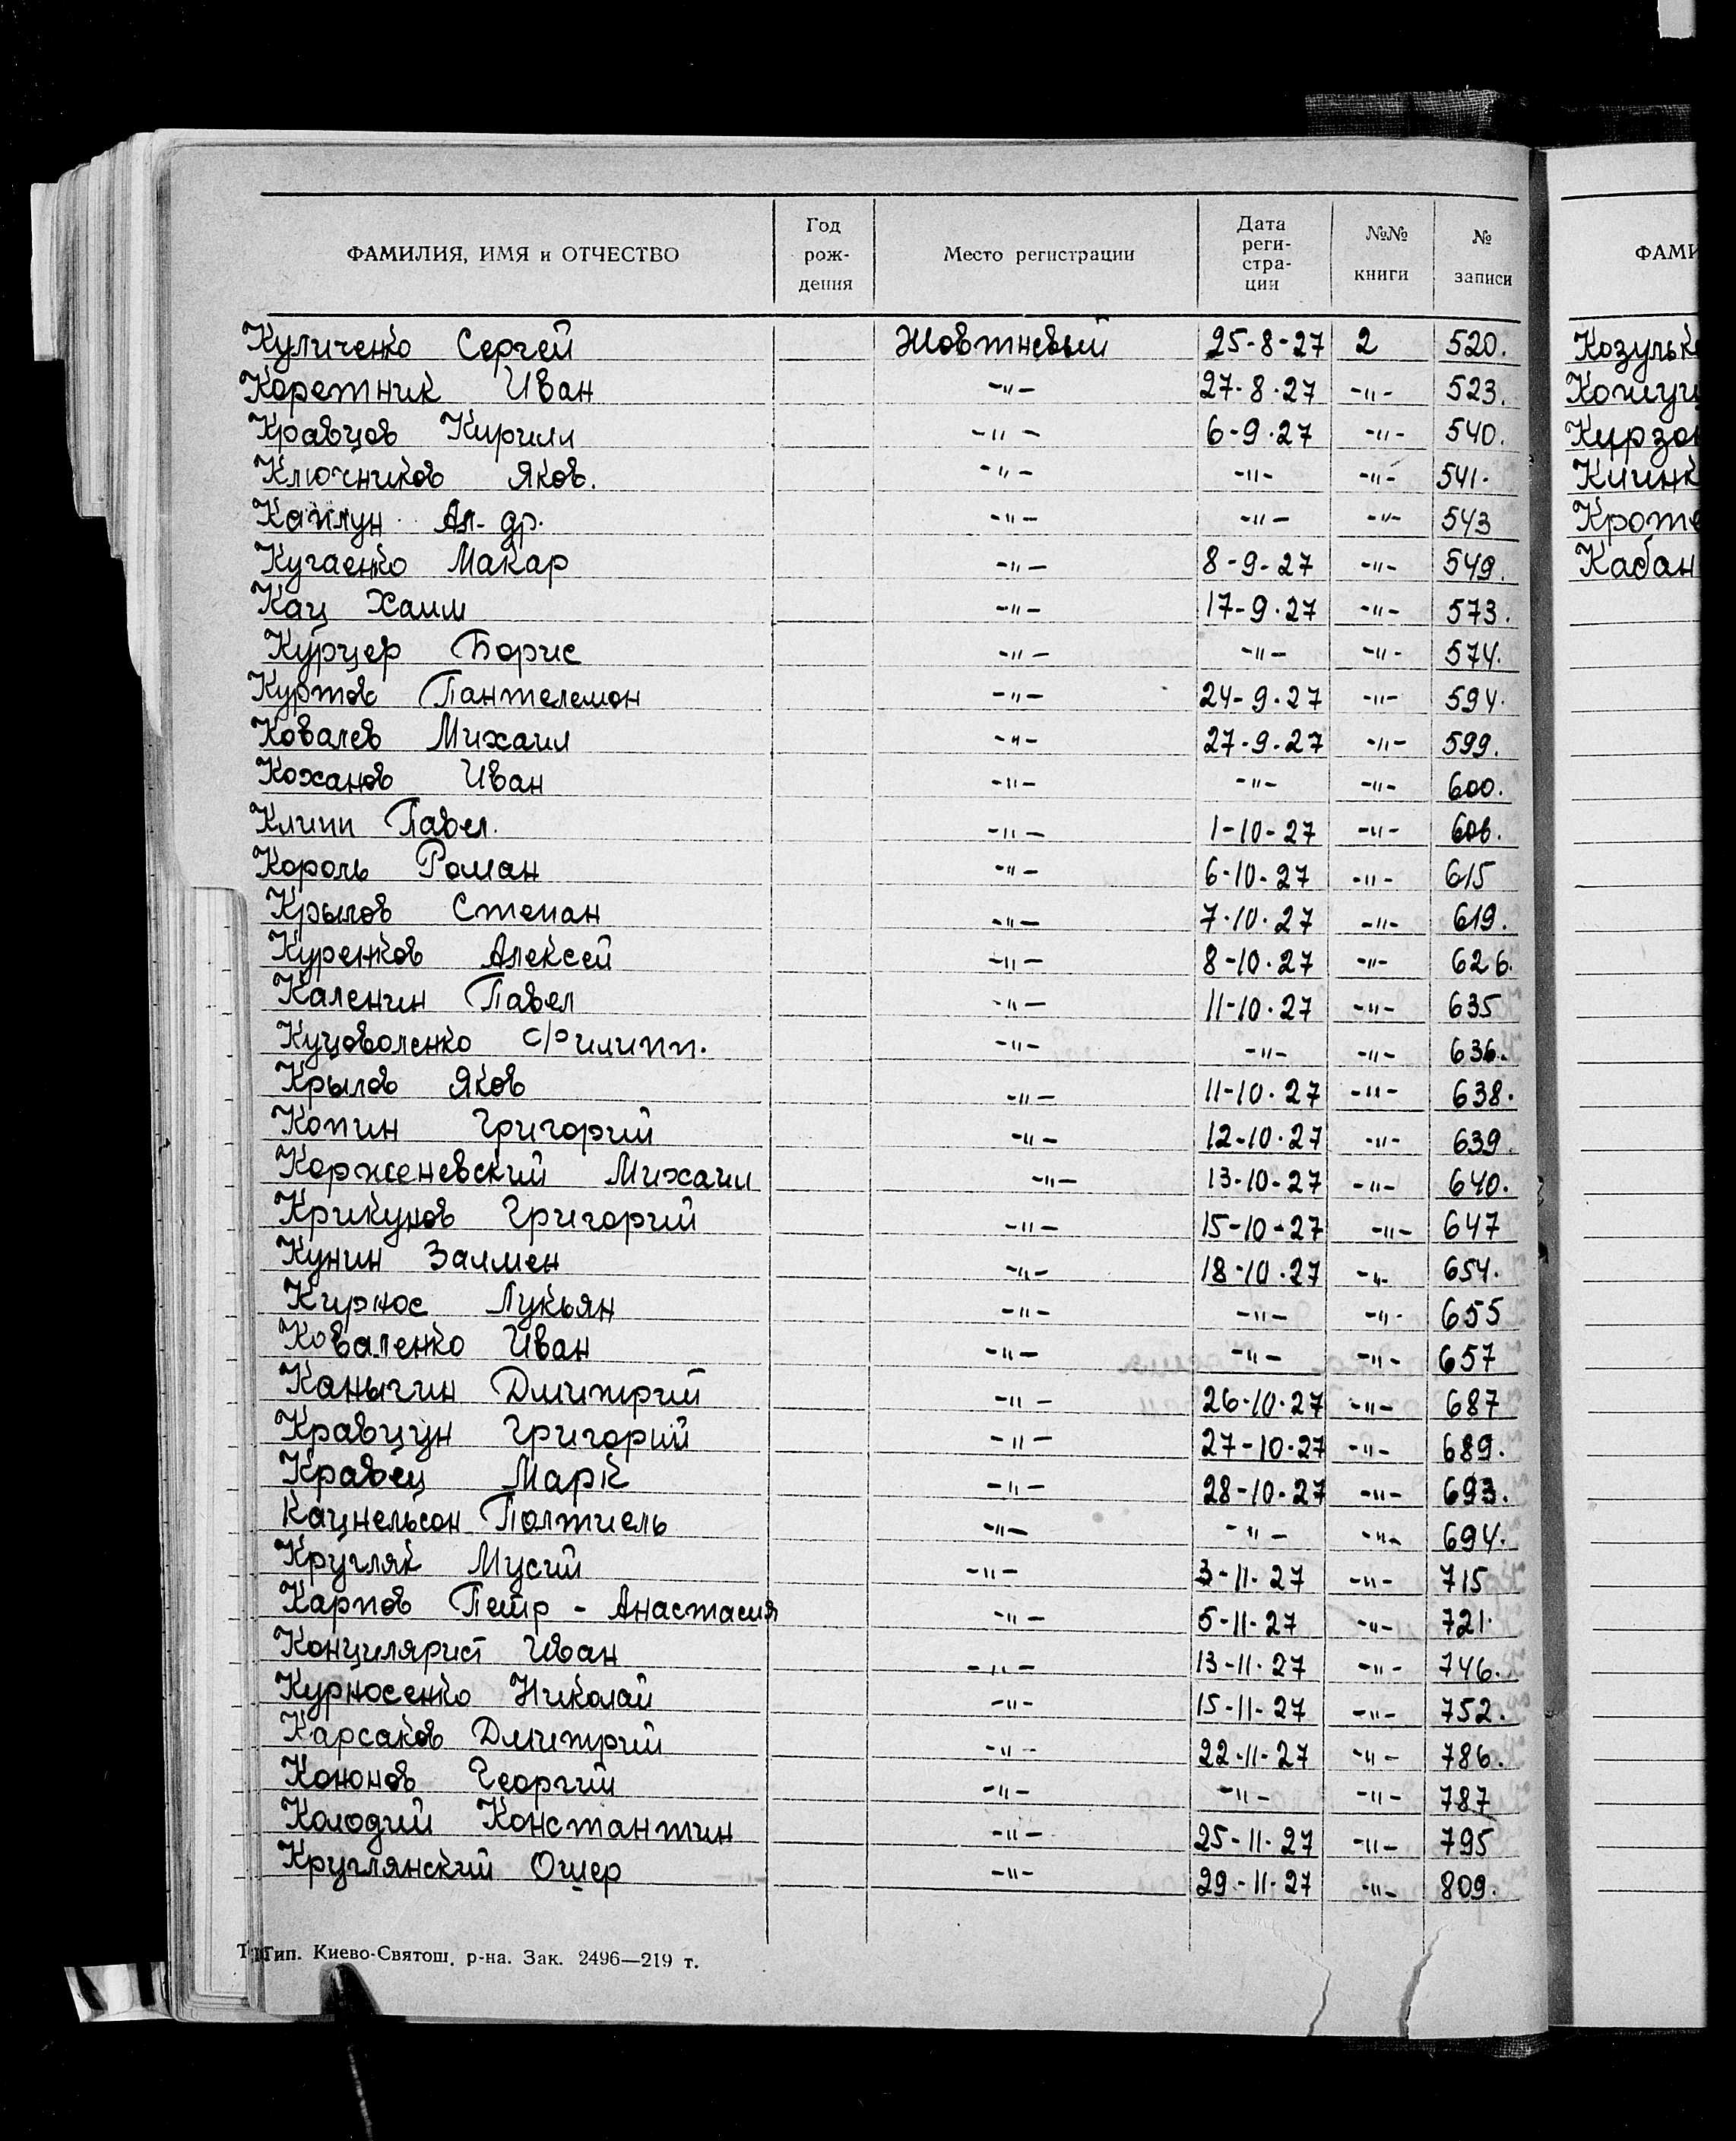 ФАМИЛИЯ, ИМЯ и ОТЧЕСТВО Год рож- дения Место регистрации Дата реги- стра- ции №№ книги № записи
Куличенко Сергей Жовтневый 25-8-27 2 520.
Коретник Иван -"- 27-8-27 -"- 523.
Кравцов Кирилл -"- 6-9-27 -"- 540.
Ключников Яков. -"- -"- -"- 541.
Каплун Ал-др. -"- -"- -"- 543
Кугаенко Макар -"- 8-9-27 -"- 549.
Кац Хаим -"- 17-9-27 -"- 573.
Курцер Борис -"- -"- -"- 574.
Куртов Пантелемон -"- 24-9-27 -"- 594.
Ковалев Михаил -"- 27-9-27 -"- 599.
Коханов Иван -"- -"- -"- 600.
Клипп Павел. -"- 1-10-27 -"- 606.
Король Роман -"- 6-10-27 -"- 615
Крылов Степан -"- 7-10-27 -"- 619.
Куренков Алексей -"- 8-10-27 -"- 626.
Каленин Павел -"- 11-10-27 -"- 635
Куцоволенко Филипп. -"- -"- -"- 636.
Крылов Яков -"- 11-10-27 -"- 638.
Копин Григорий -"- 12-10-27 -"- 639.
Корженевский Михаил -"- 13-10-27 -"- 640.
Крикунов Григорий -"- 15-10-27 -"- 647
Кунин Залмен -"- 18-10-27 -"- 654.
Кирнос Лукьян -"- -"- -"- 655
Коваленко Иван -"- -"- -"- 657
Каныгин Дмитрий -"- 26-10-27 -"- 687
Кравцун Григорий -"- 27-10-27 -"- 689.
Кравец Марк -"- 28-10-27 -"- 693.
Кацнельсон Палтиель -"- -"- -"- 694.
Кругляк Мусий -"- 3-11-27 -"- 715
Карпов Петр - Анастасия -"- 5-11-27 -"- 721.
Концилярист Иван -"- 13-11-27 -"- 746.
Курносенко Николай -"- 15-11-27 -"- 752.
Карсаков Дмитрий -"- 22-11-27 -"- 786.
Кононов Георгий -"- -"- -"- 787
Колодий Константин -"- 25-11-27 -"- 795
Круглянский Ошер -"- 29-11-27 -"- 809.
Тип. Киево-Святош. р-на. Зак. 2496—219 т.
ФАМИ
Козульк
Кожуш
Кирзо
Киинк
Кроте
Кабан